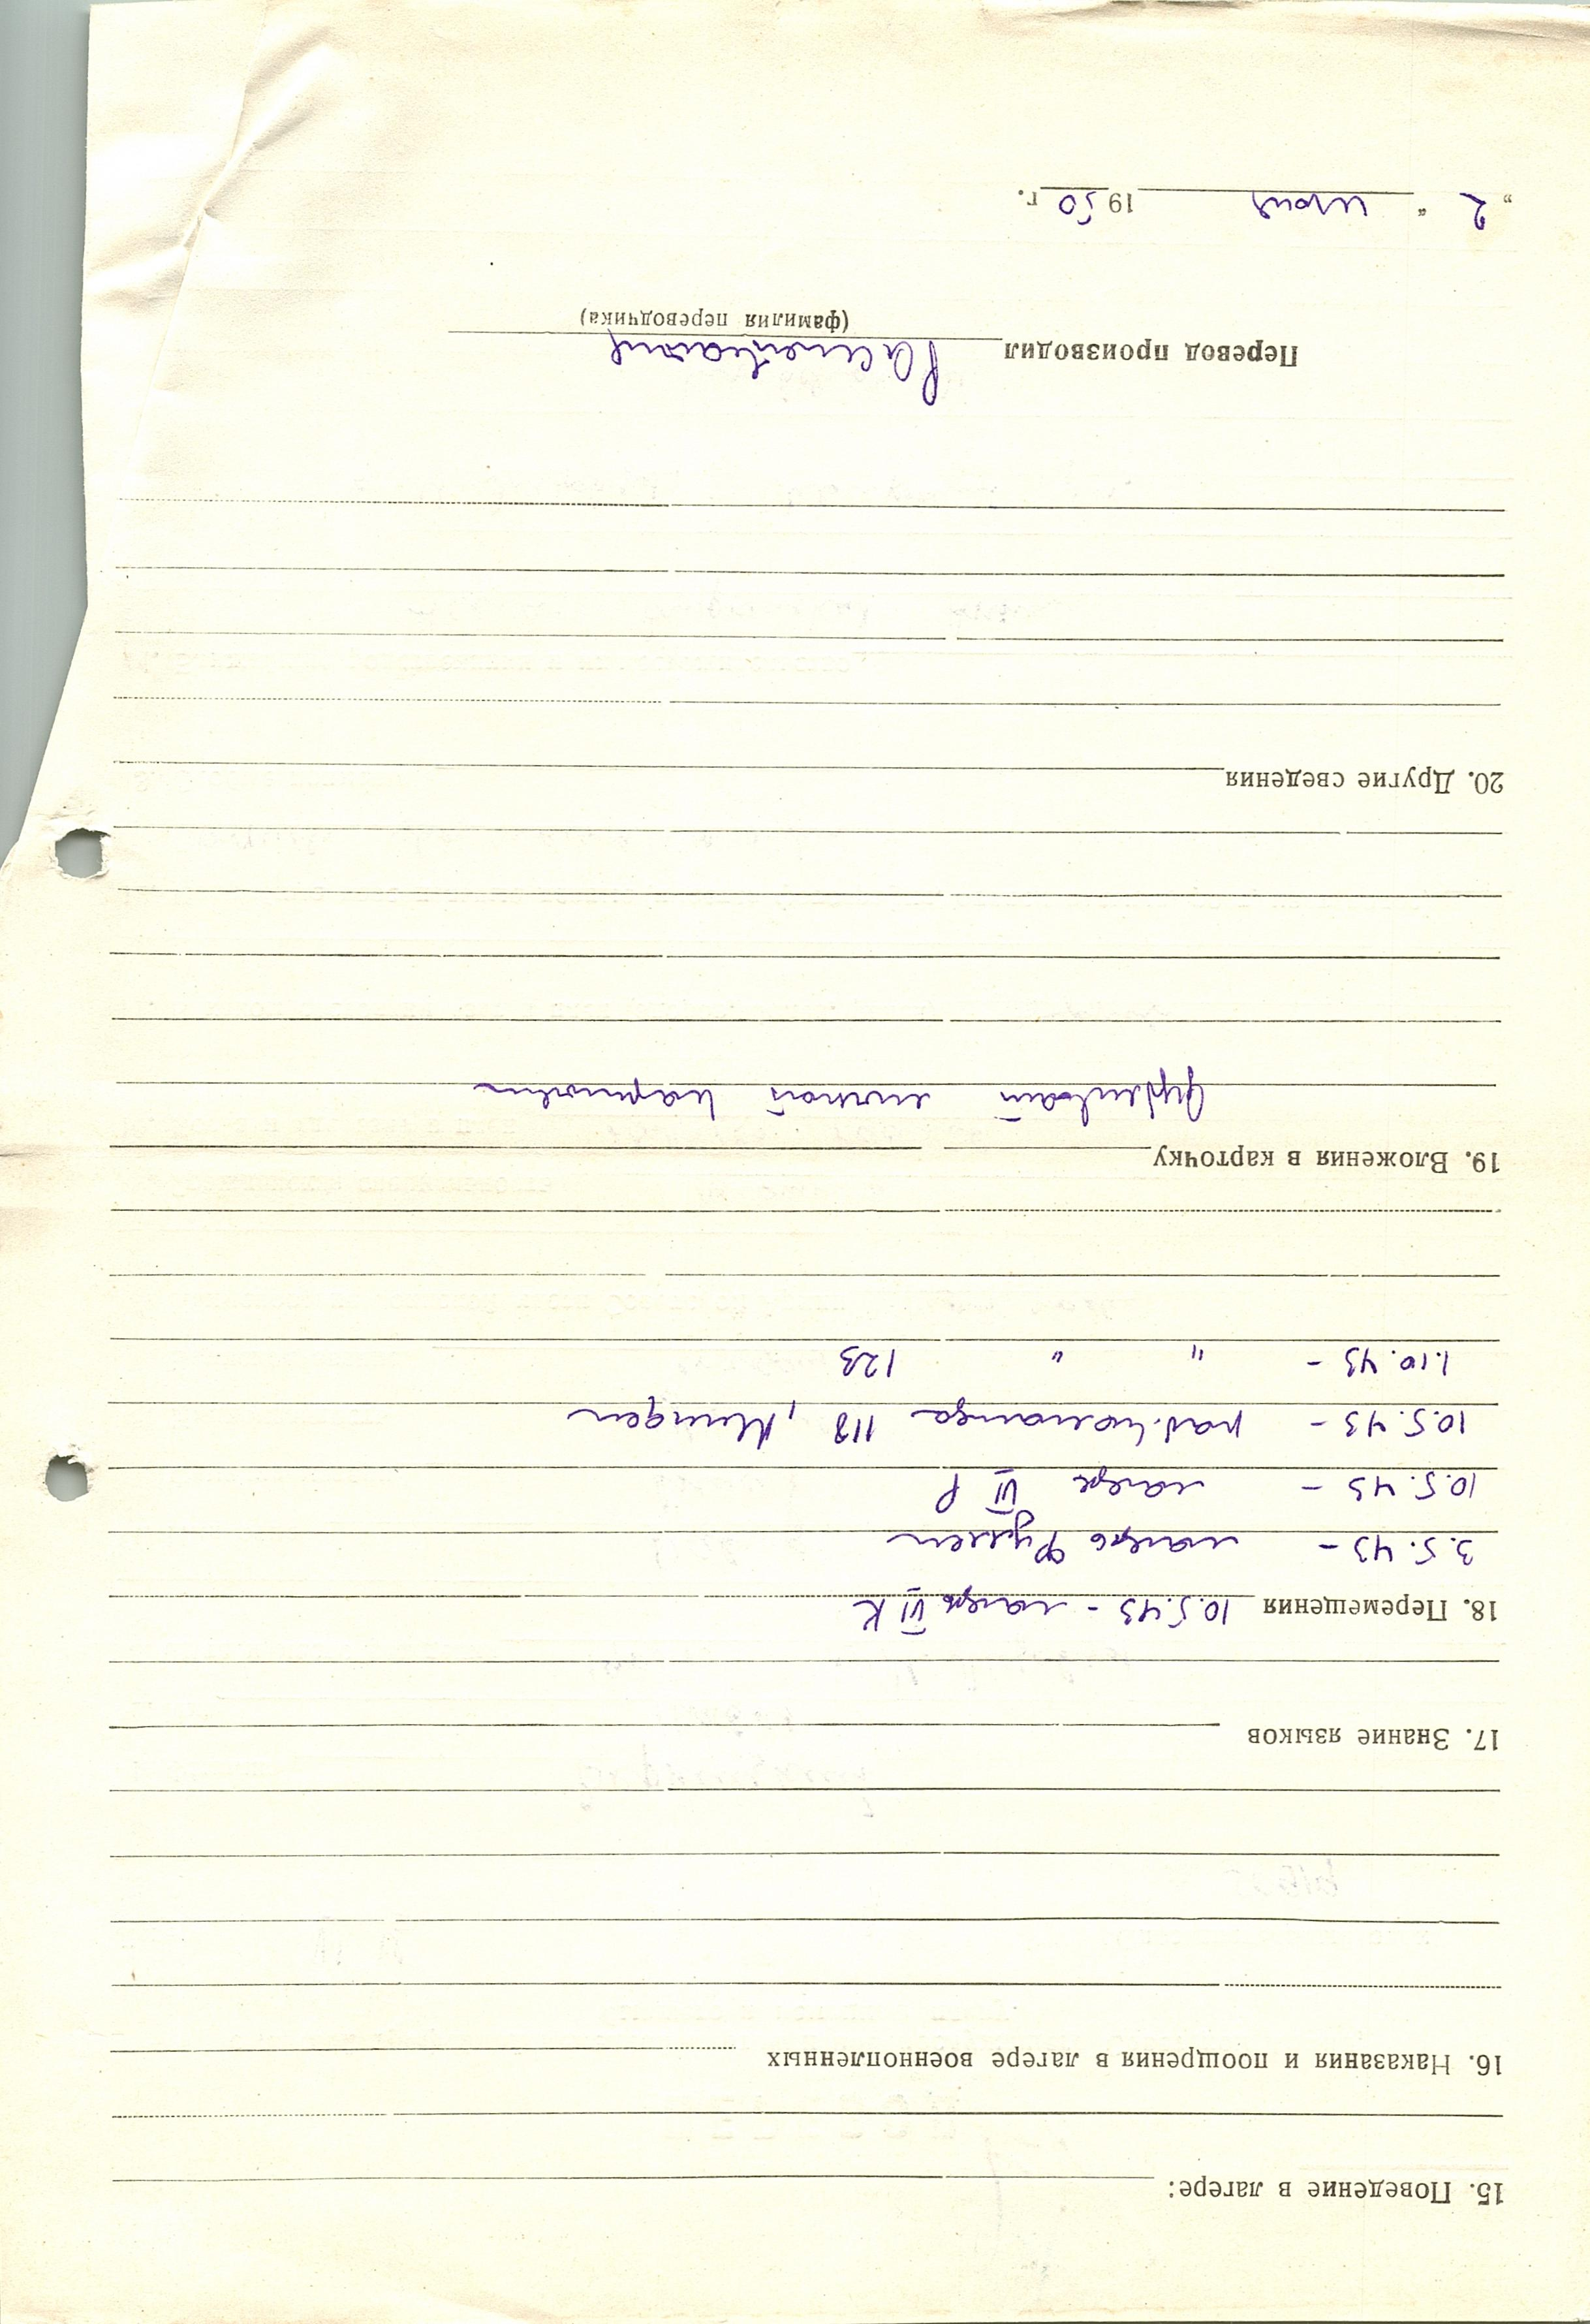 15. Поведение в лагере:
16. Наказания и поощрения в лагере военнопленных
17. Знание языков
18. Перемещения 10.5.43 - лагерь VI K
3.5.43 - лагерь Фуллен
10.5.43 - лагерь VI
10.5.43 - раб. команда 118,
1.10.43 - " " 123
19. Вложения в карточку
Дубликат личной карточки
20. Другие сведения
Перевод производил
(фамилия переводчика)
„ 2 “ 1950 г.